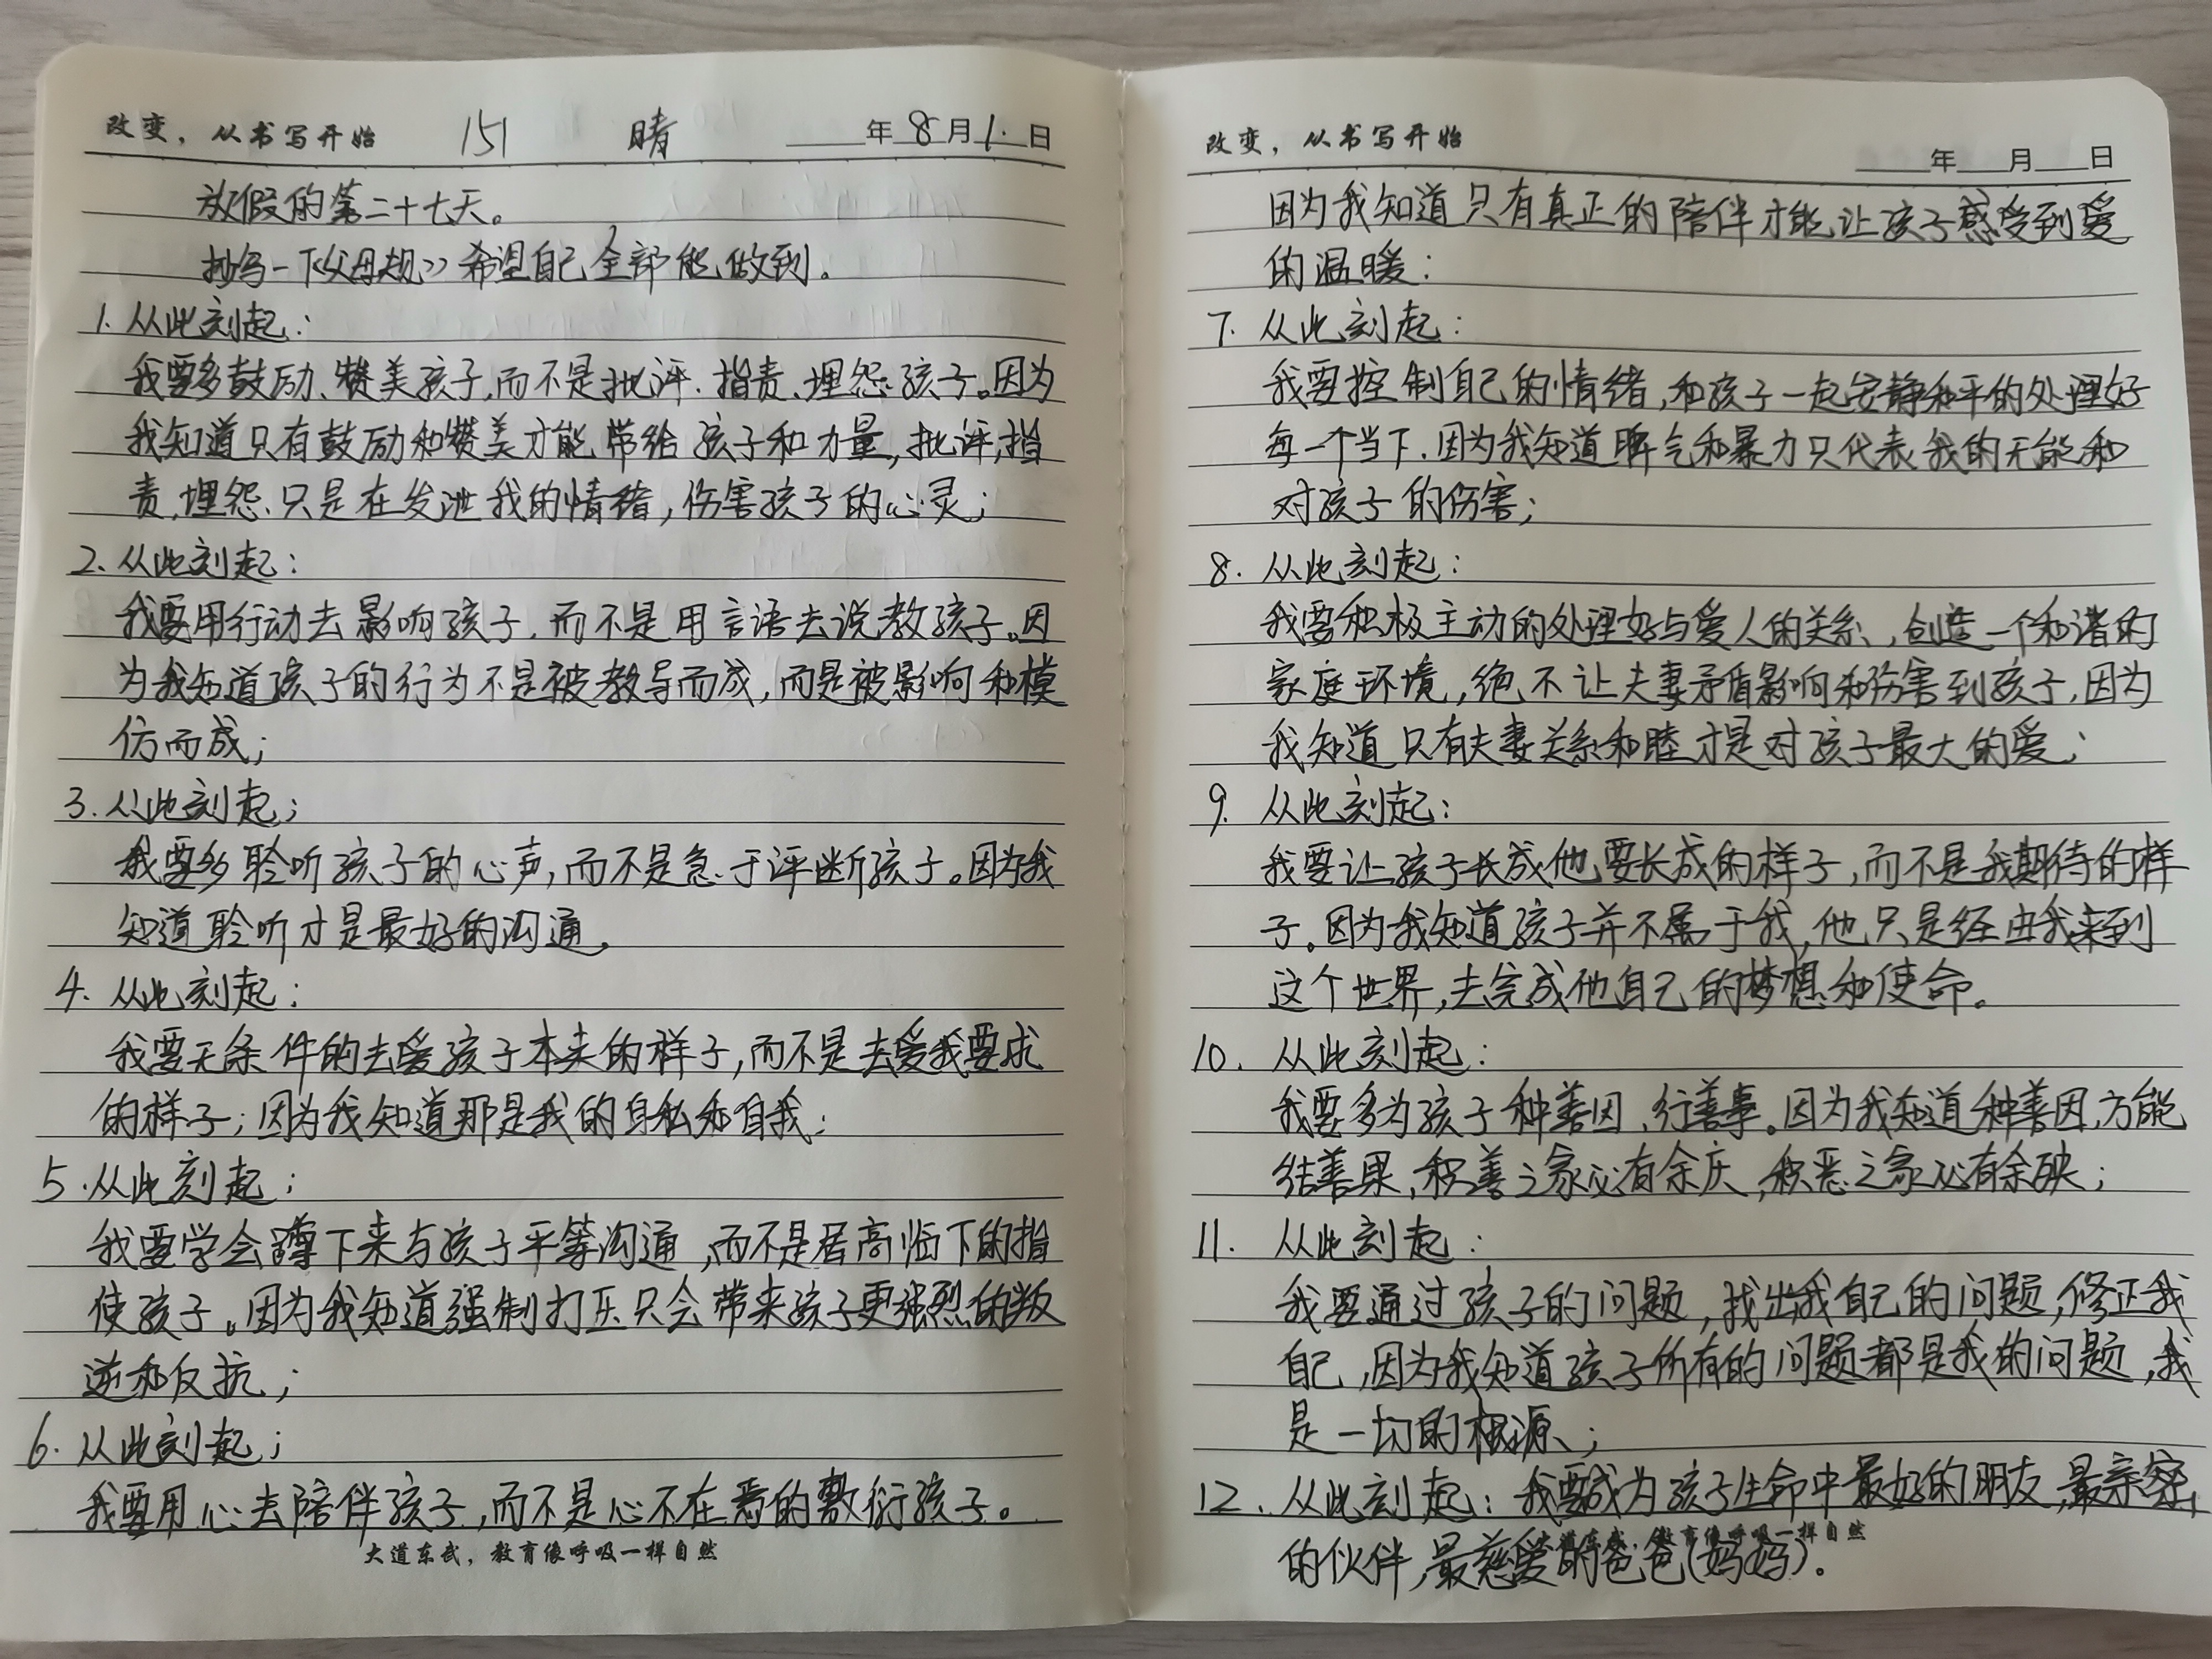 改变，从书写开始 151 晴 年8月1日
放假的第二十七天。
抄写一下《父母规》希望自己全部能做到。
1. 从此刻起：
我要多鼓励、赞美孩子，而不是批评、指责、埋怨孩子。因为
我知道只有鼓励和赞美才能带给孩子和力量，批评，指
责、埋怨、只是在发泄我的情绪，伤害孩子的心灵；
2. 从此刻起：
我要用行动去影响孩子，而不是用言语去说教孩子。因
为我知道孩子的行为不是被教导而成，而是被影响和模
仿而成；
3. 从此刻起；
我要多聆听孩子的心声，而不是急于评断孩子。因为我
知道聆听才是最好的沟通。
4. 从此刻起：
我要无条件的去爱孩子本来的样子，而不是去爱我要求
的样子；因为我知道那是我的自私和自我；
5. 从此刻起；
我要学会蹲下来与孩子平等沟通，而不是居高临下的指
使孩子。因为我知道强制打压只会带来孩子更强烈的叛
逆和反抗；
6. 从此刻起；
我要用心去陪伴孩子，而不是心不在焉的敷衍孩子。
大道东武，教育像呼吸一样自然
改变，从书写开始 年 月 日
因为我知道只有真正的陪伴才能让孩子感受到爱
的温暖：
7. 从此刻起：
我要控制自己的情绪，和孩子一起安静和平的处理好
每一个当下，因为我知道脾气和暴力只代表我的无能和
对孩子的伤害；
8. 从此刻起：
我要积极主动的处理好与爱人的关系，创造一个和谐的
家庭环境，绝不让夫妻矛盾影响和伤害到孩子，因为
我知道只有夫妻关系和睦才是对孩子最大的爱；
9. 从此刻起：
我要让孩子长成他要长成的样子，而不是我期待的样
子。因为我知道孩子并不属于我，他只是经由我来到
这个世界，去完成他自己的梦想和使命。
10. 从此刻起：
我要多为孩子种善因、行善事。因为我知道种善因，方能
结善果，积善之家必有余庆，积恶之家必有余殃；
11. 从此刻起：
我要通过孩子的问题，找出我自己的问题，修正我
自己，因为我知道孩子所有的问题都是我的问题，我
是一切的根源；
12. 从此刻起：我要成为孩子生命中最好的朋友，最亲密
的伙伴，最慈爱的爸爸（妈妈）。
大道东武，教育像呼吸一样自然